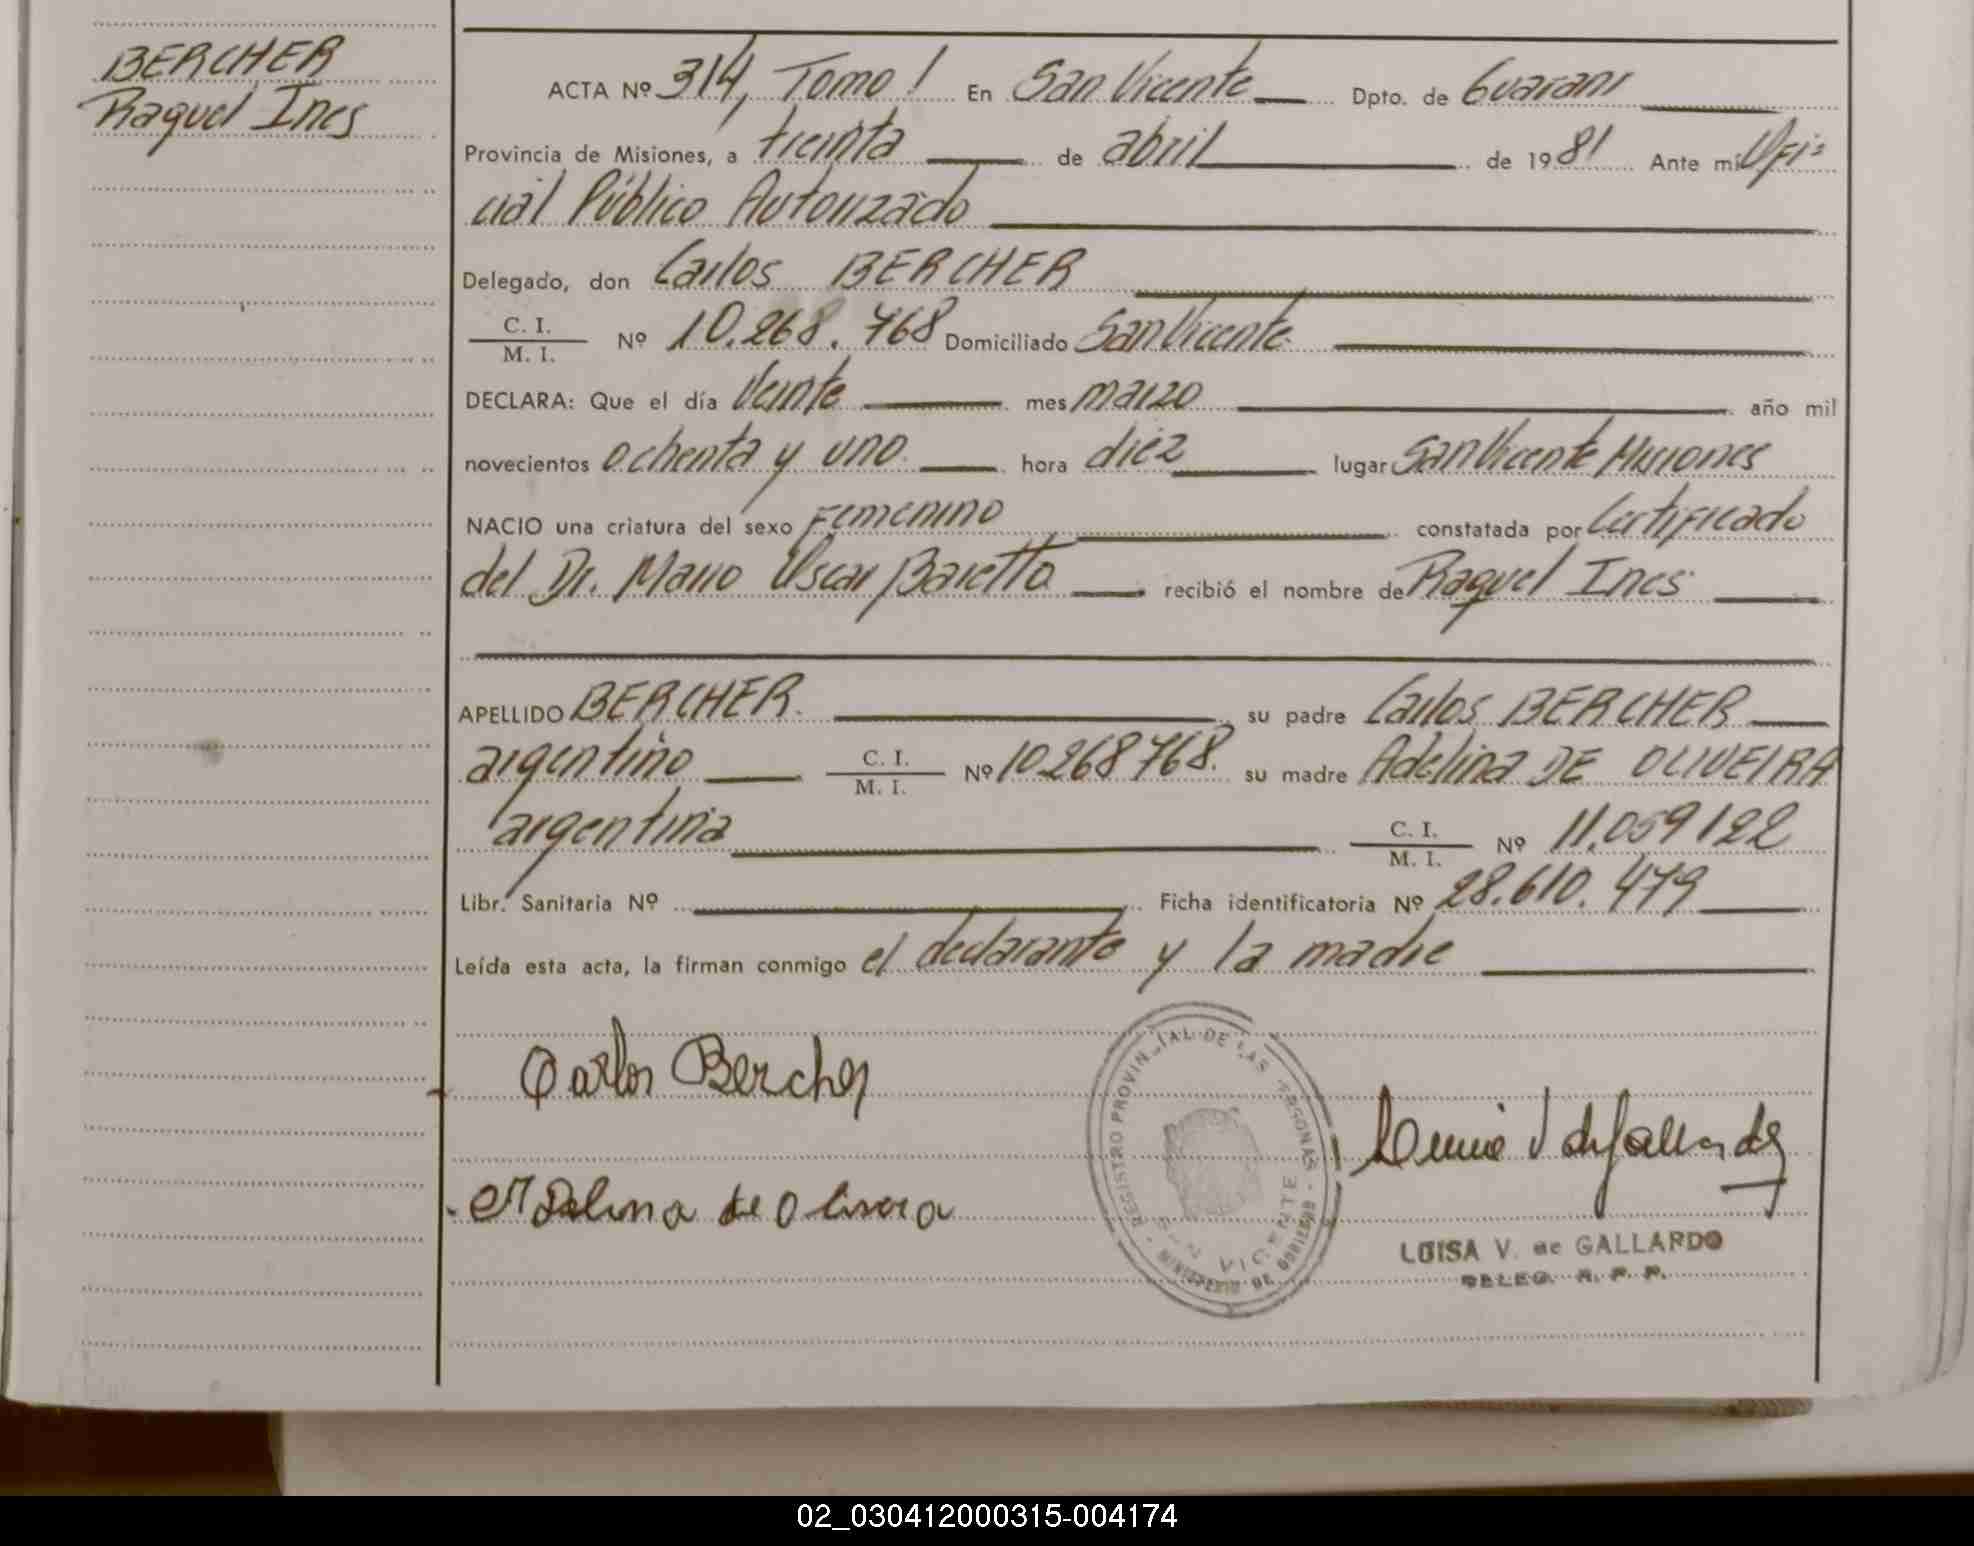 BERCHER
Raquel Ines
ACTA Nº 314, Tomo I En San Vicente Dpto. de Guarani
Provincia de Misiones, a treinta de abril de 1981 Ante mi Ofi=
cial Público Autorizado
Delegado, don Carlos BERCHER
C. I.
M. I.
Nº 10.268.768 Domiciliado San Vicente
DECLARA: Que el día Veinte mes marzo año mil
novecientos ochenta y uno hora diez lugar San Vicente Misiones
NACIO una criatura del sexo Femenino constatada por Certificado
del Dr. Mario Oscar Baretto recibió el nombre de Raquel Ines
APELLIDO BERCHER su padre Carlos BERCHER
argentino C. I. M. I. Nº 10.268768. su madre Adelina DE OLIVEIRA
argentina C. I. M. I. Nº 11.059122
Libr. Sanitaria Nº Ficha identificatoria Nº 28.610.479
Leída esta acta, la firman conmigo el declarante y la madre
Carlos Bercher
Adelina de Olivera
REGISTRO PROVINCIAL DE LAS PERSONAS - MINISTERIO DE GOBIERNO -
SAN VICENTE
LUISA V. de GALLARDO
DELEG. R. P. P.
02_030412000315-004174